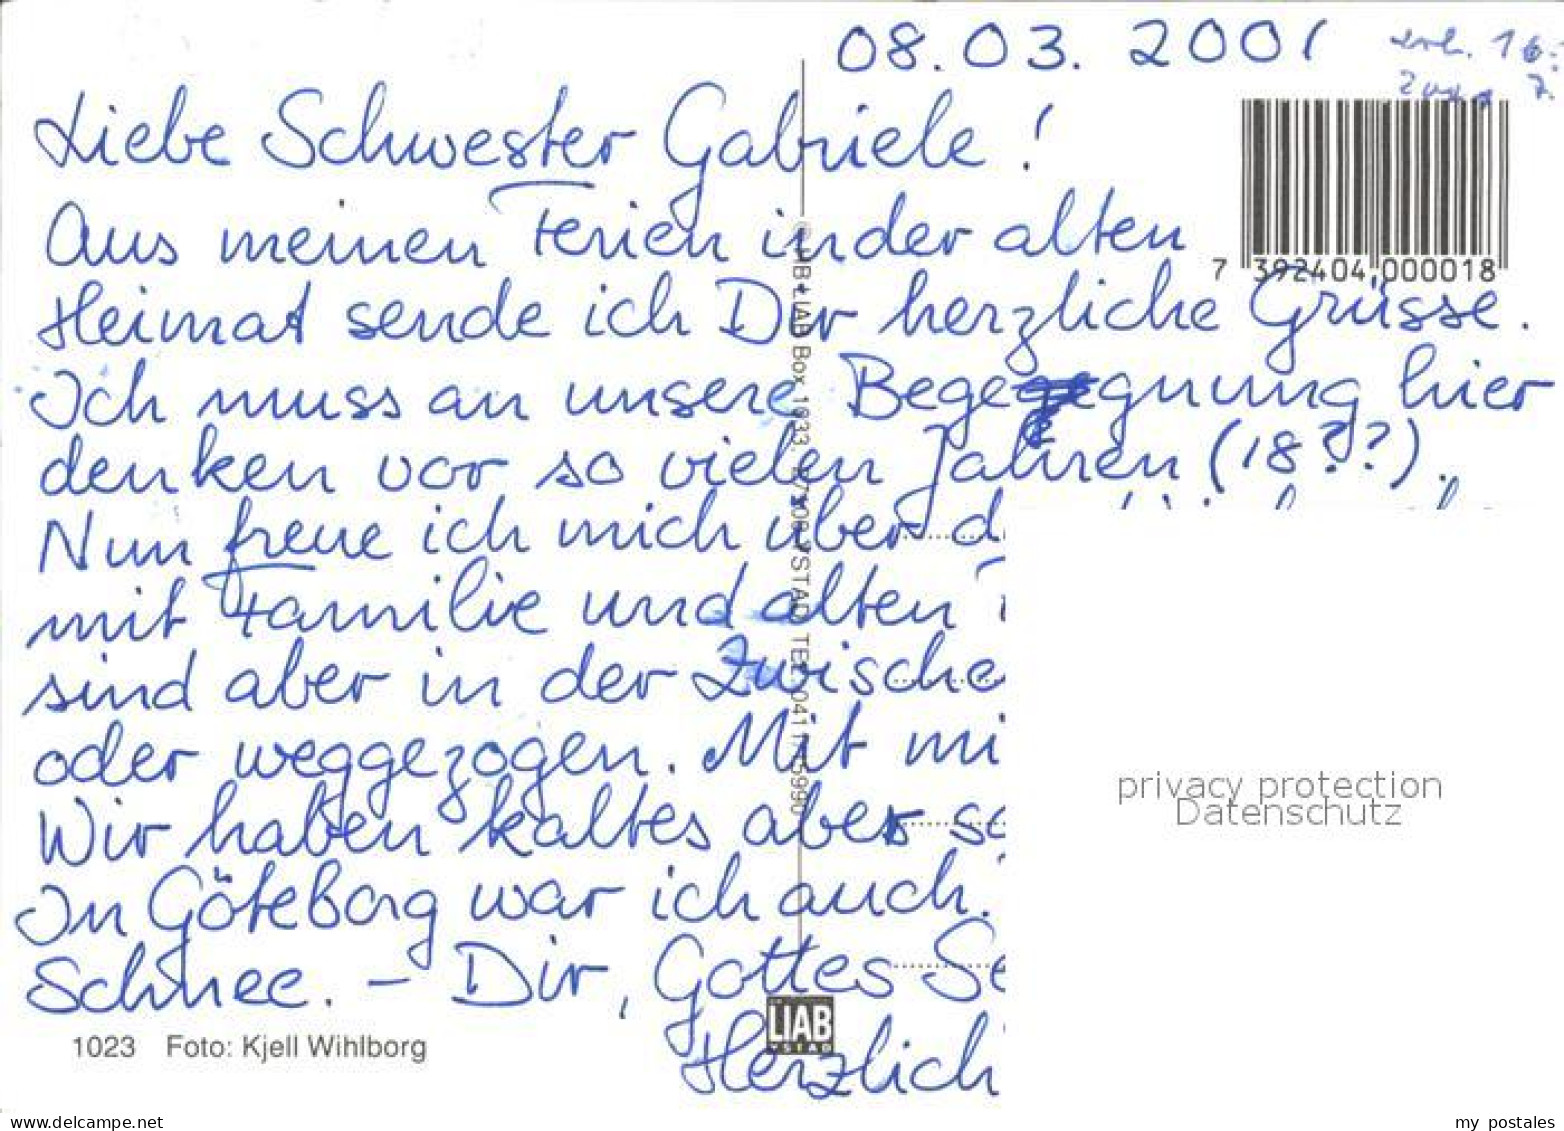 08.03.2001
erh. 16.
Liebe Schwester Gabriele!
7 392404 000018
Aus meinen Ferien in der alten
Heimat sende ich Dir herzliche Grüsse.
Ich muss an unsere Begegnung hier
denken vor so vielen Jahren (18??).
Nun freue ich mich über d
mit Familie und alten
sind aber in der Zwische
oder weggezogen. Mit mi
Wir haben kaltes aber so
In Göteborg war ich auch.
Schnee. – Dir, Gottes Se
Herzlich
1023 Foto: Kjell Wihlborg
LIAB
YSTAD
privacy protection
Datenschutz
delcampe.net
my_postales